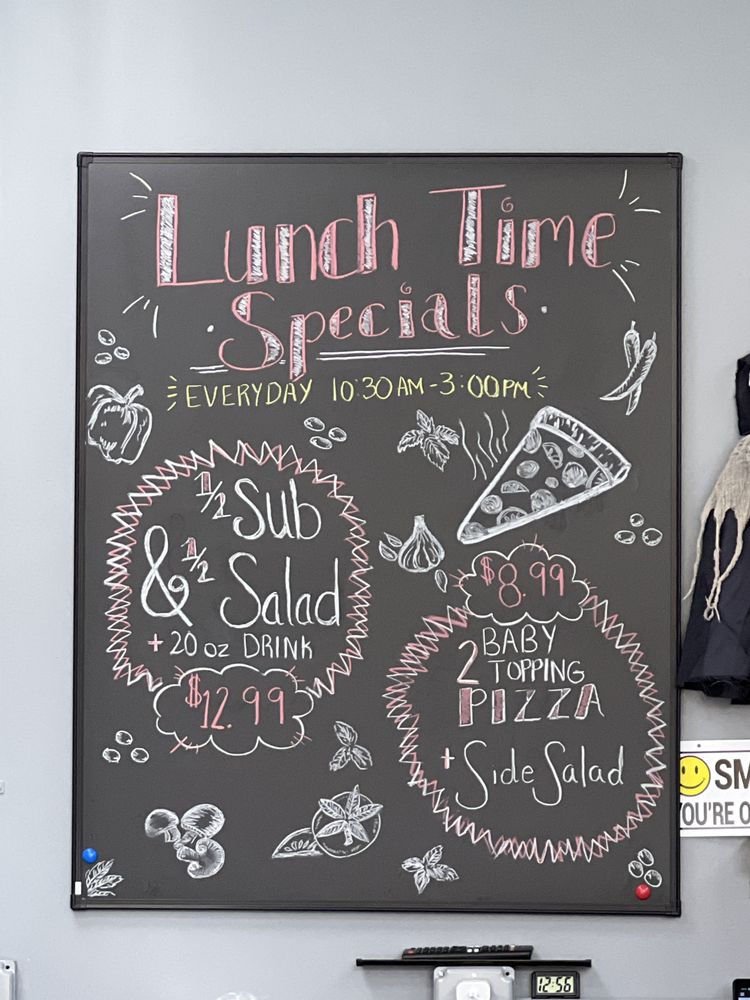 Lunch Time
Specials
EVERYDAY 10:30AM-3:00PM
1/2 Sub
& 1/2 Salad
+ 20 oz DRINK
$12.99
$8.99
2 BABY
TOPPING
PIZZA
+ Side Salad
SM
YOU'RE O
12:56